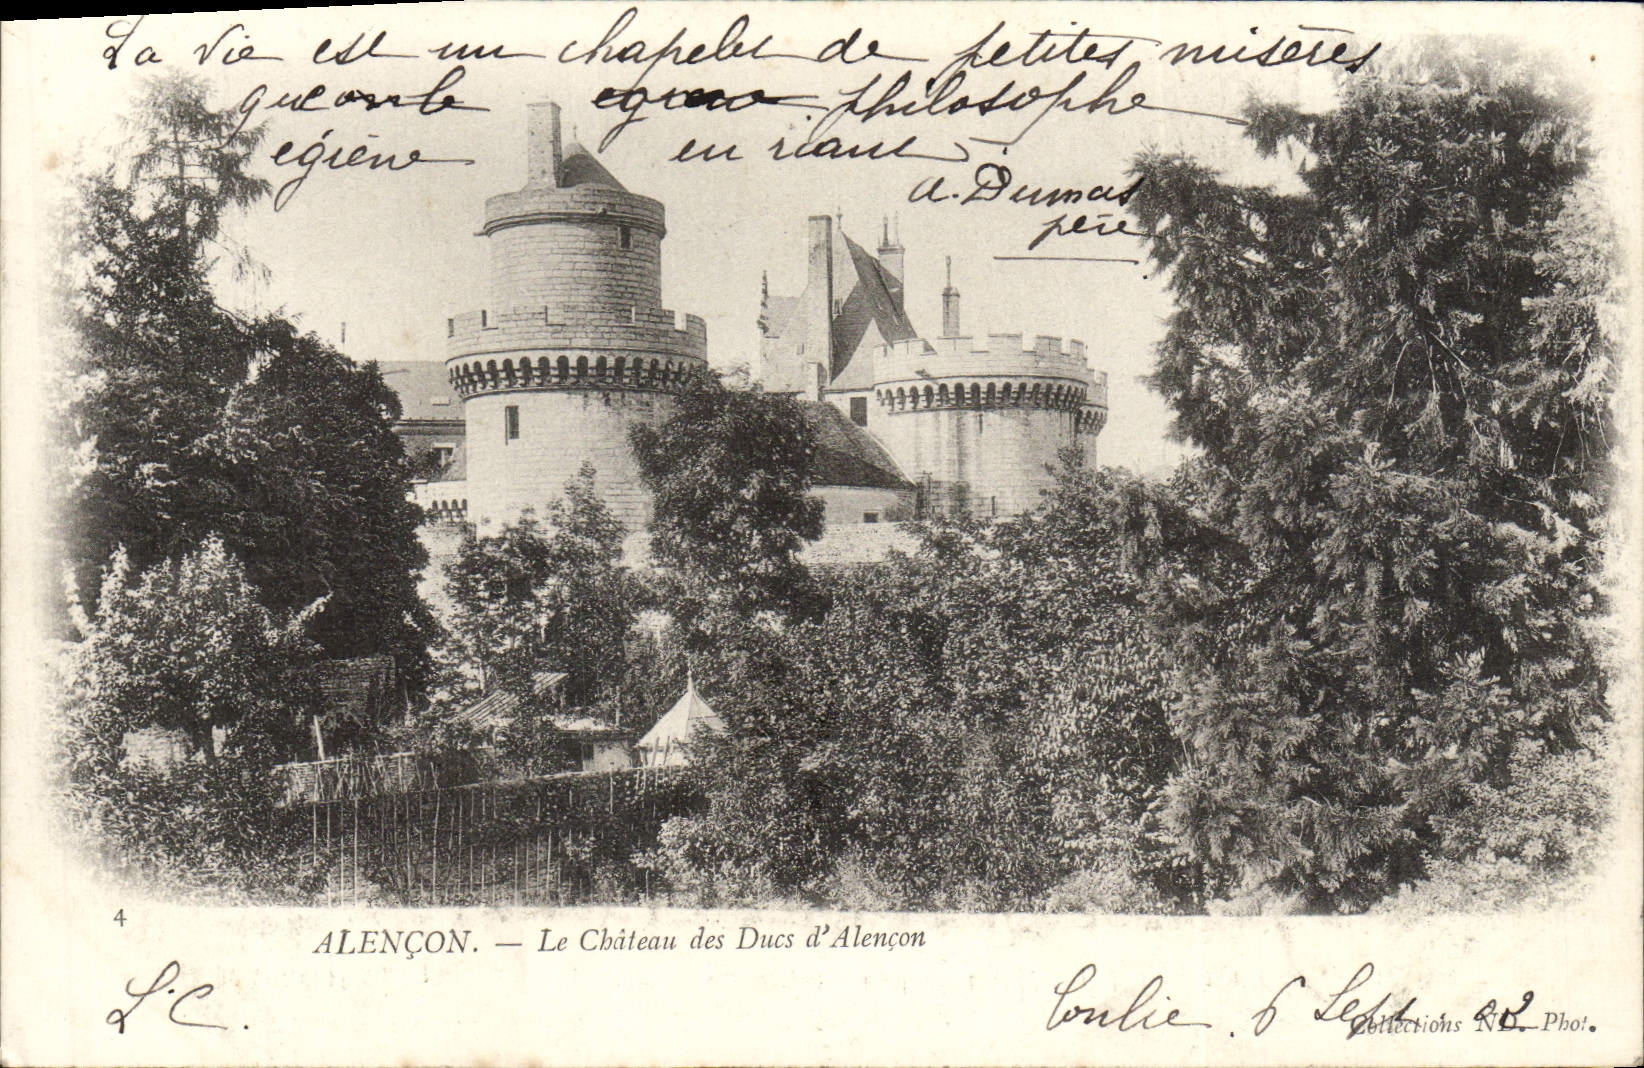 La vie est un chapelet de petites misères
que le philosophe
égrène en riant.
A. Dumas
père
4
ALENÇON. — Le Château des Ducs d'Alençon
L. C.
Conlie. 6 Sept. 02
Collections ND. Phot.